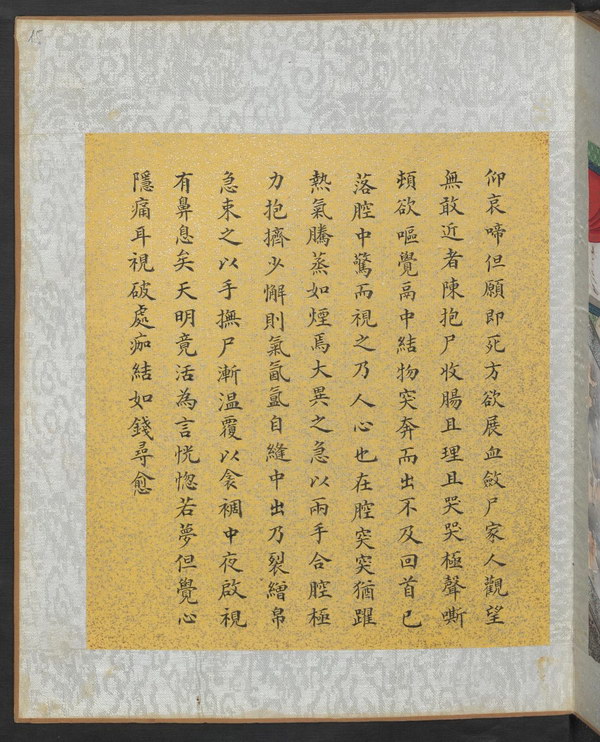 仰哀啼但願即死方欲展血斂尸家人觀望
無敢近者陳抱尸收腸且理且哭哭極聲嘶
頓欲嘔覺鬲中結物突奔而出不及回首已
落腔中驚而視之乃人心也在腔突突猶躍
熱氣騰蒸如煙焉大異之急以兩手合腔極
力抱擠少懈則氣氤氳自縫中出乃裂繒帛
急束之以手撫尸漸溫覆以衾裯中夜啟視
有鼻息矣天明竟活為言恍惚若夢但覺心
隱痛耳視破處痂結如錢尋愈
15